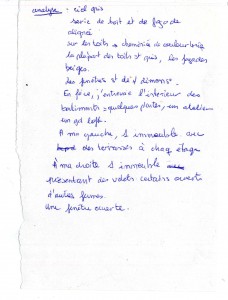 analyse : ciel gris
série de toit et de façade
dégradé
sur les toits = cheminée de couleur
la plupart des toits st gris, les façades
beiges.
des fenêtres st dé
En face, j'entrevoie l'intérieur des
batiments = quelques plantes, un atelier
un gd loft.
A ma gauche, 1 immeuble avec
des terrasses à chaq étage
A ma droite 1 immeuble
présentant des volets certains ouverts
d'autres fermés.
Une fenêtre ouverte.